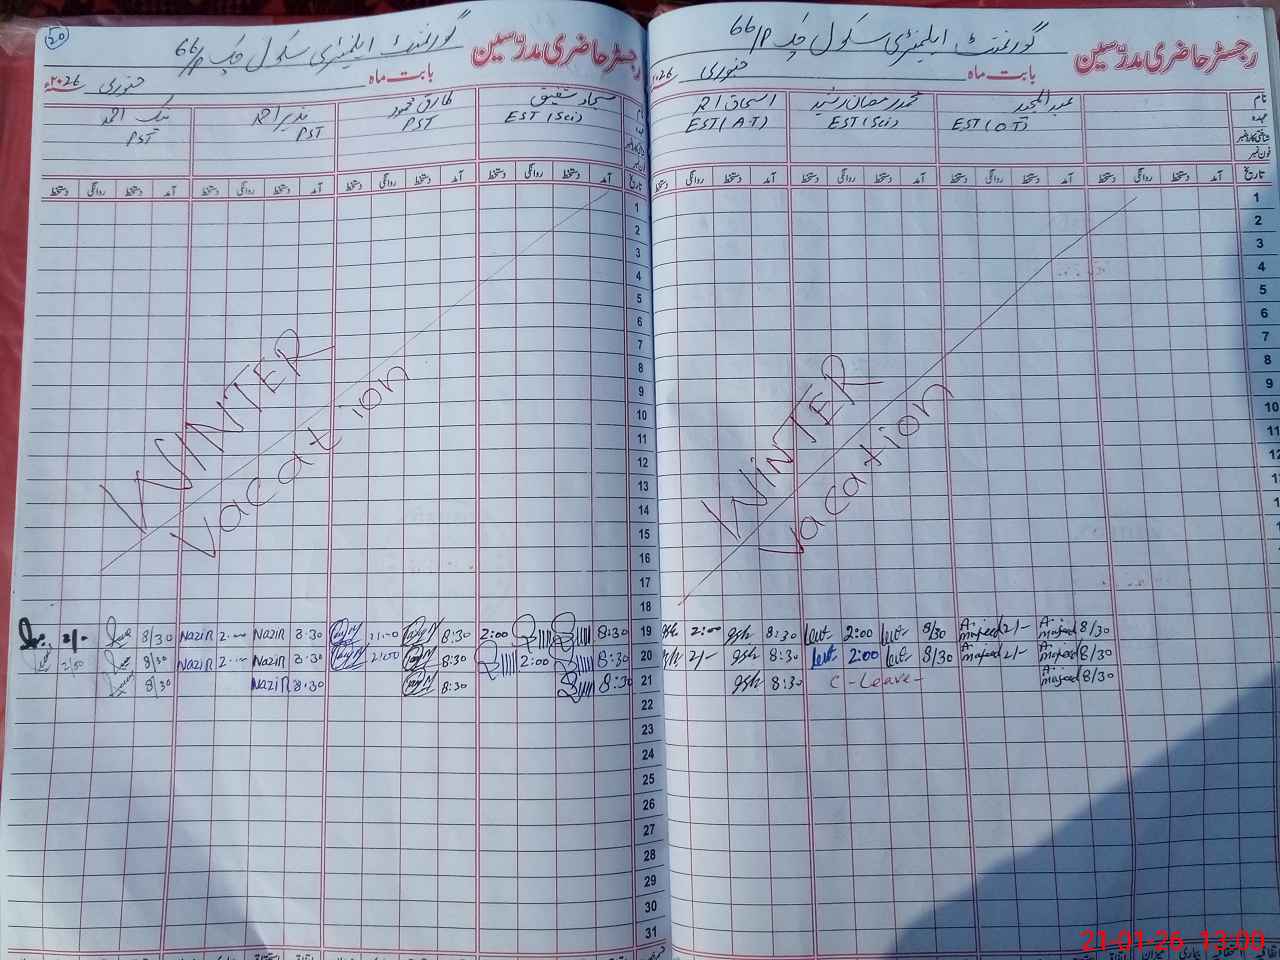 20
گورنمنٹ ایلیمنٹری سکول چک 66/P
رجسٹر حاضری مدرّسین
بابت ماہ جنوری ۲۰۲۶ء
نام سجاد شفیق طارق محمود نذیر احمد
EST (Sci) PST PST PST
تاریخ آمد دستخط روانگی دستخط آمد دستخط روانگی دستخط آمد دستخط روانگی دستخط آمد دستخط روانگی دستخط
1
2
3
4
5
6
7
8
9
10
11
12
13
14
15
16
17
18
WINTER
Vacation
8/30 Nazir 2:00 Nazir 8:30 8:30 2:00 8:30 19
8/30 Nazir 2:00 Nazir 8:30 2:00 8:30 2:00 8:30 20
8/30 Nazir 8:30 8:30 8:30 21
22
23
24
25
26
27
28
29
30
31
گورنمنٹ ایلیمنٹری سکول چک 66/P
رجسٹر حاضری مدرّسین
بابت ماہ جنوری ۲۰۲۶
نام عبدالمجید محمد رمضان رشید اسحاق احمد
عہدہ EST (OT) EST (Sci) EST (AT)
فون نمبر
تاریخ آمد دستخط روانگی دستخط آمد دستخط روانگی دستخط آمد دستخط روانگی دستخط آمد دستخط روانگی دستخط
1
2
3
4
5
6
7
8
9
10
11
12
WINTER
Vacation
2:00 8:30 2:00 8/30 A. majeed 2/- A. majeed 8/30
2/- 8:30 2:00 8/30 A. majeed 2/- A. majeed 8/30
8:30 C-Leave- A. majeed 8/30
21-01-26, 13:00